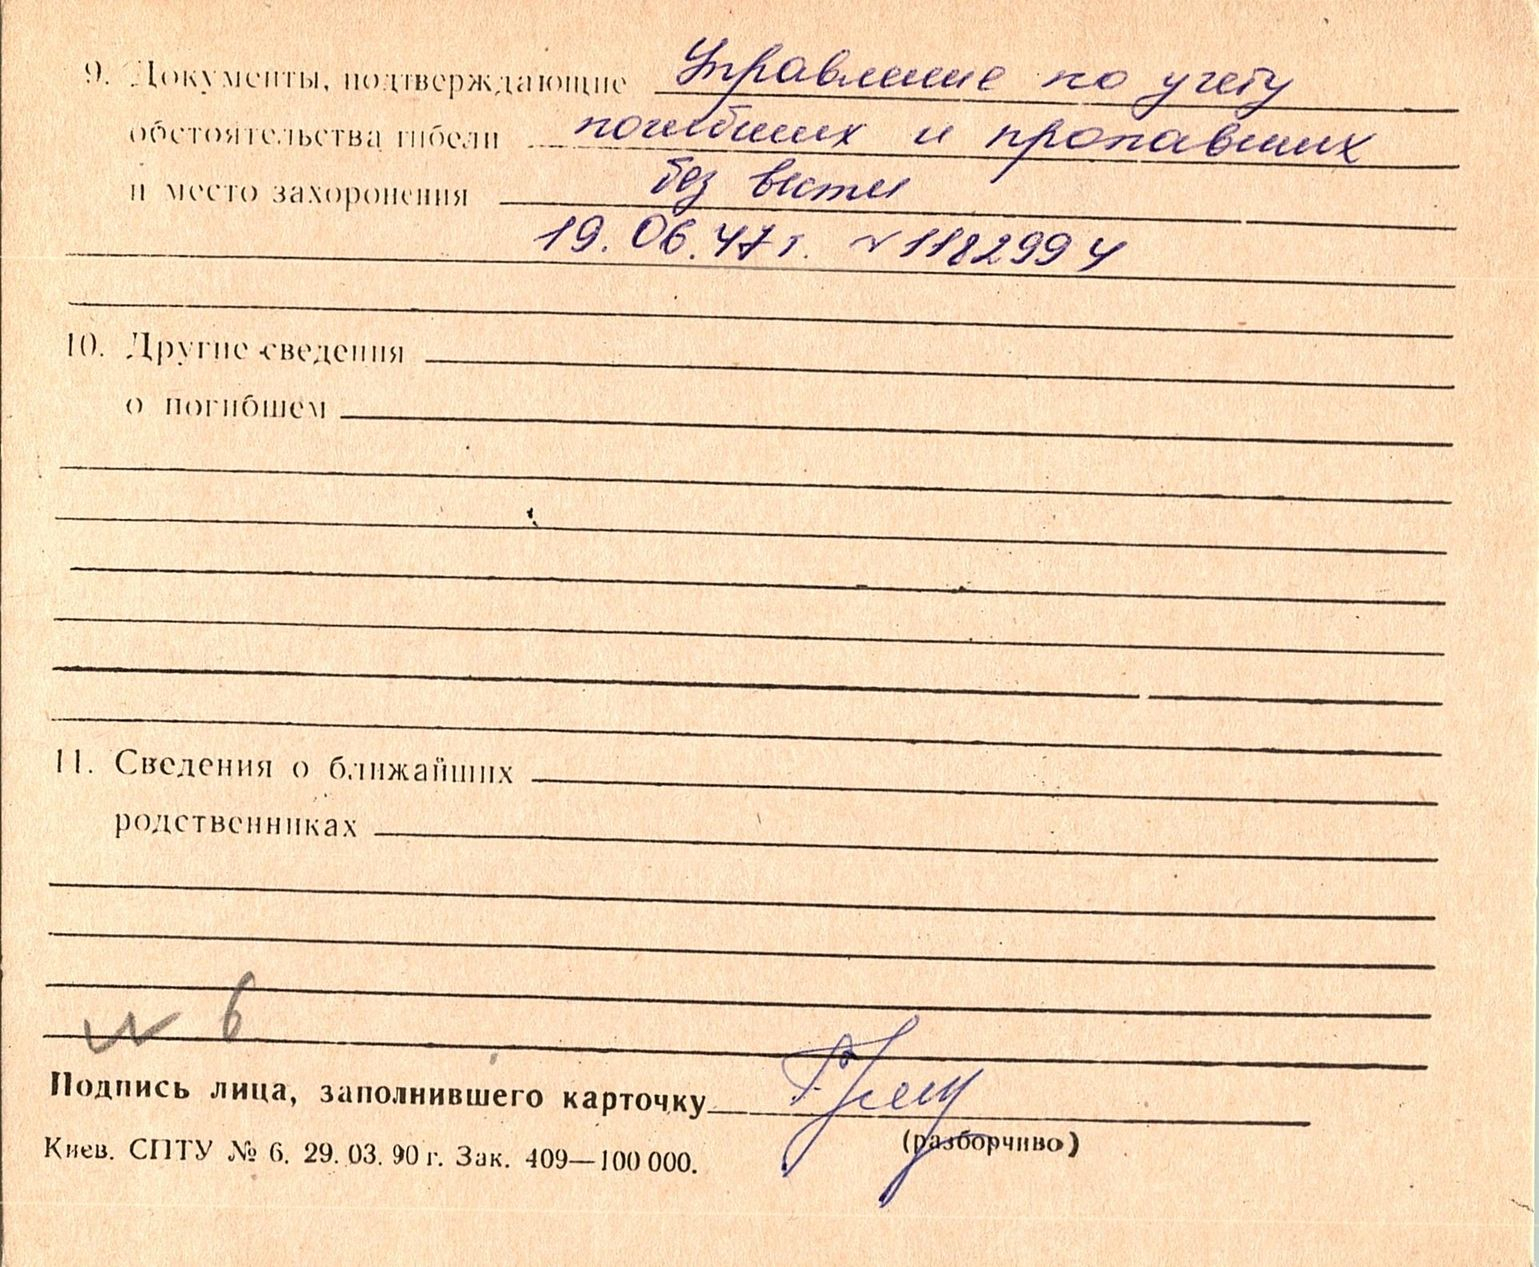 9. Документы, подтверждающие Управление по учету
обстоятельства гибели погибших и пропавших
и место захоронения без вести
19.06.47 г. № 1182994
10. Другие сведения
о погибшем
11. Сведения о ближайших
родственниках
№ 6
Подпись лица, заполнившего карточку
(разборчиво)
Киев. СПТУ № 6. 29. 03. 90 г. Зак. 409—100 000.